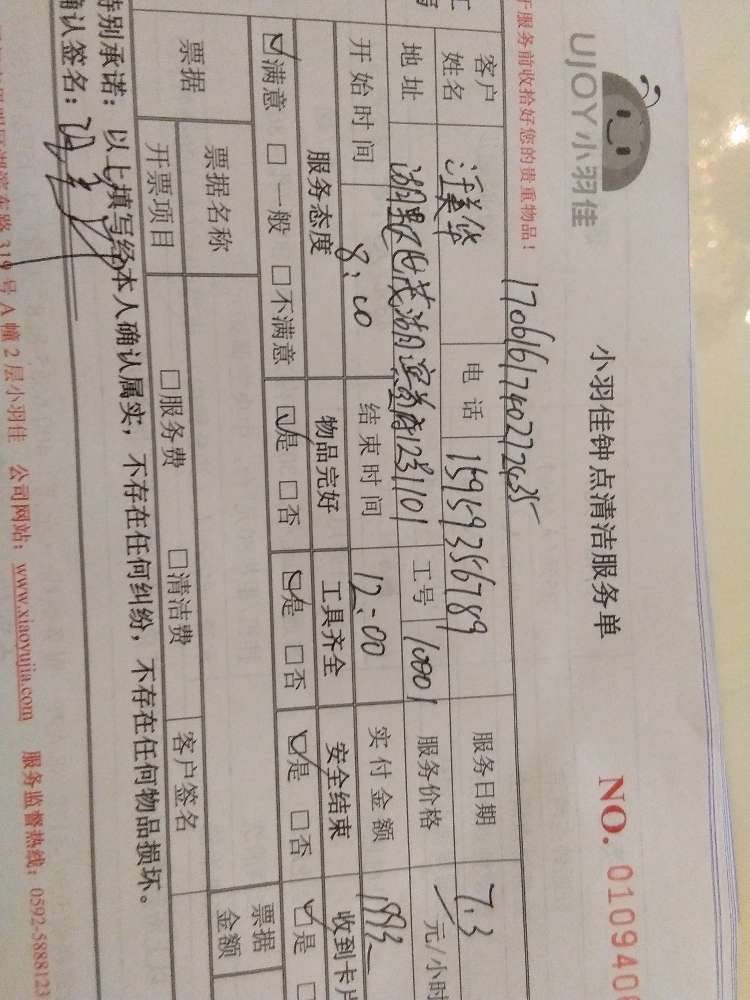 UJOY小羽佳
小羽佳钟点清洁服务单
NO. 0109400
于服务前收拾好您的贵重物品!
1706161740272435
客户姓名 汪美华 电话 15959356789 服务日期 7.3
地址 湖里区世茂湖滨首府1231101 工号 10001 服务价格 元/小时
开始时间 8:00 结束时间 12:00 实付金额
服务态度 物品完好 工具齐全 安全结束 收到卡片
☑满意 □一般 □不满意 ☑是 □否 ☑是 □否 ☑是 □否 ☑是
票据 票据名称 票据金额
开票项目 □服务费 □清洁费 客户签名
特别承诺:以上填写经本人确认属实,不存在任何纠纷,不存在任何物品损坏。
确认签名:
湖滨东路319号A幢2层小羽佳 公司网站:www.xiaoyujia.com 服务监督热线:0592-5888123